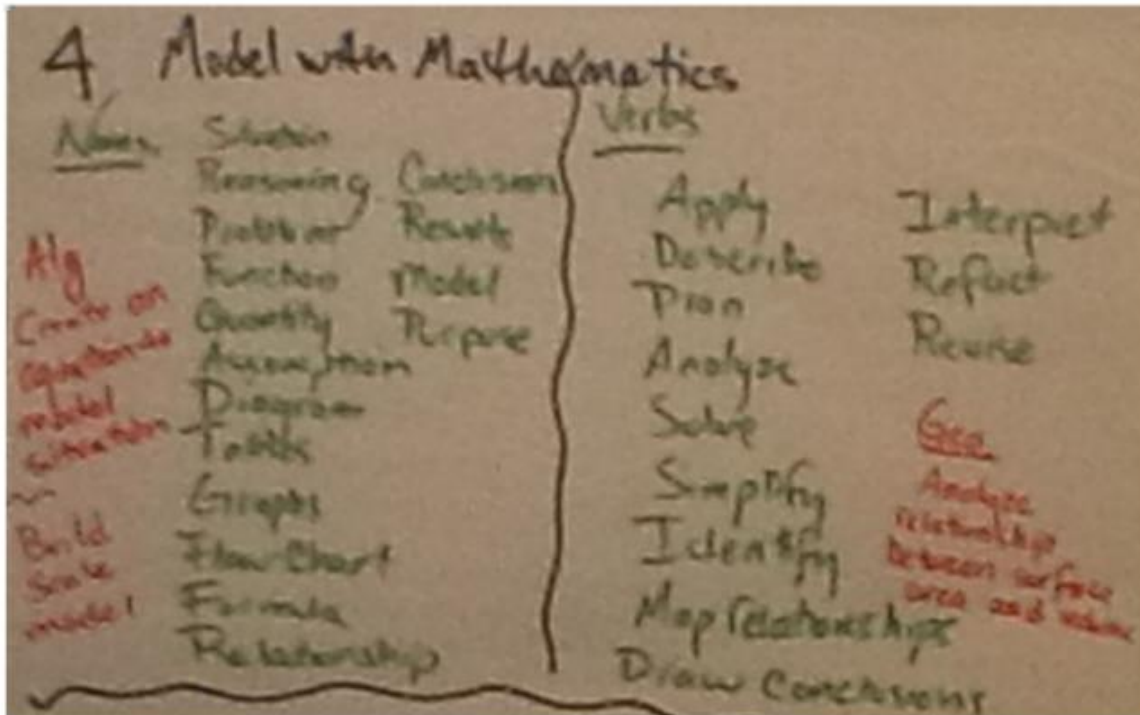 4 Model with Mathematics
Nouns
Situation
Reasoning
Problem
Function
Quantity
Assumption
Diagram
Tables
Graphs
Flowchart
Formula
Relationship
Conclusion
Results
Model
Purpose
Alg
Create an
equation to
model
situation
Build
Scale
model
Verbs
Apply
Describe
Plan
Analyze
Solve
Simplify
Identify
Map relationships
Draw Conclusions
Interpret
Reflect
Revise
Geo
Analyze
relationship
between surface
area and volume